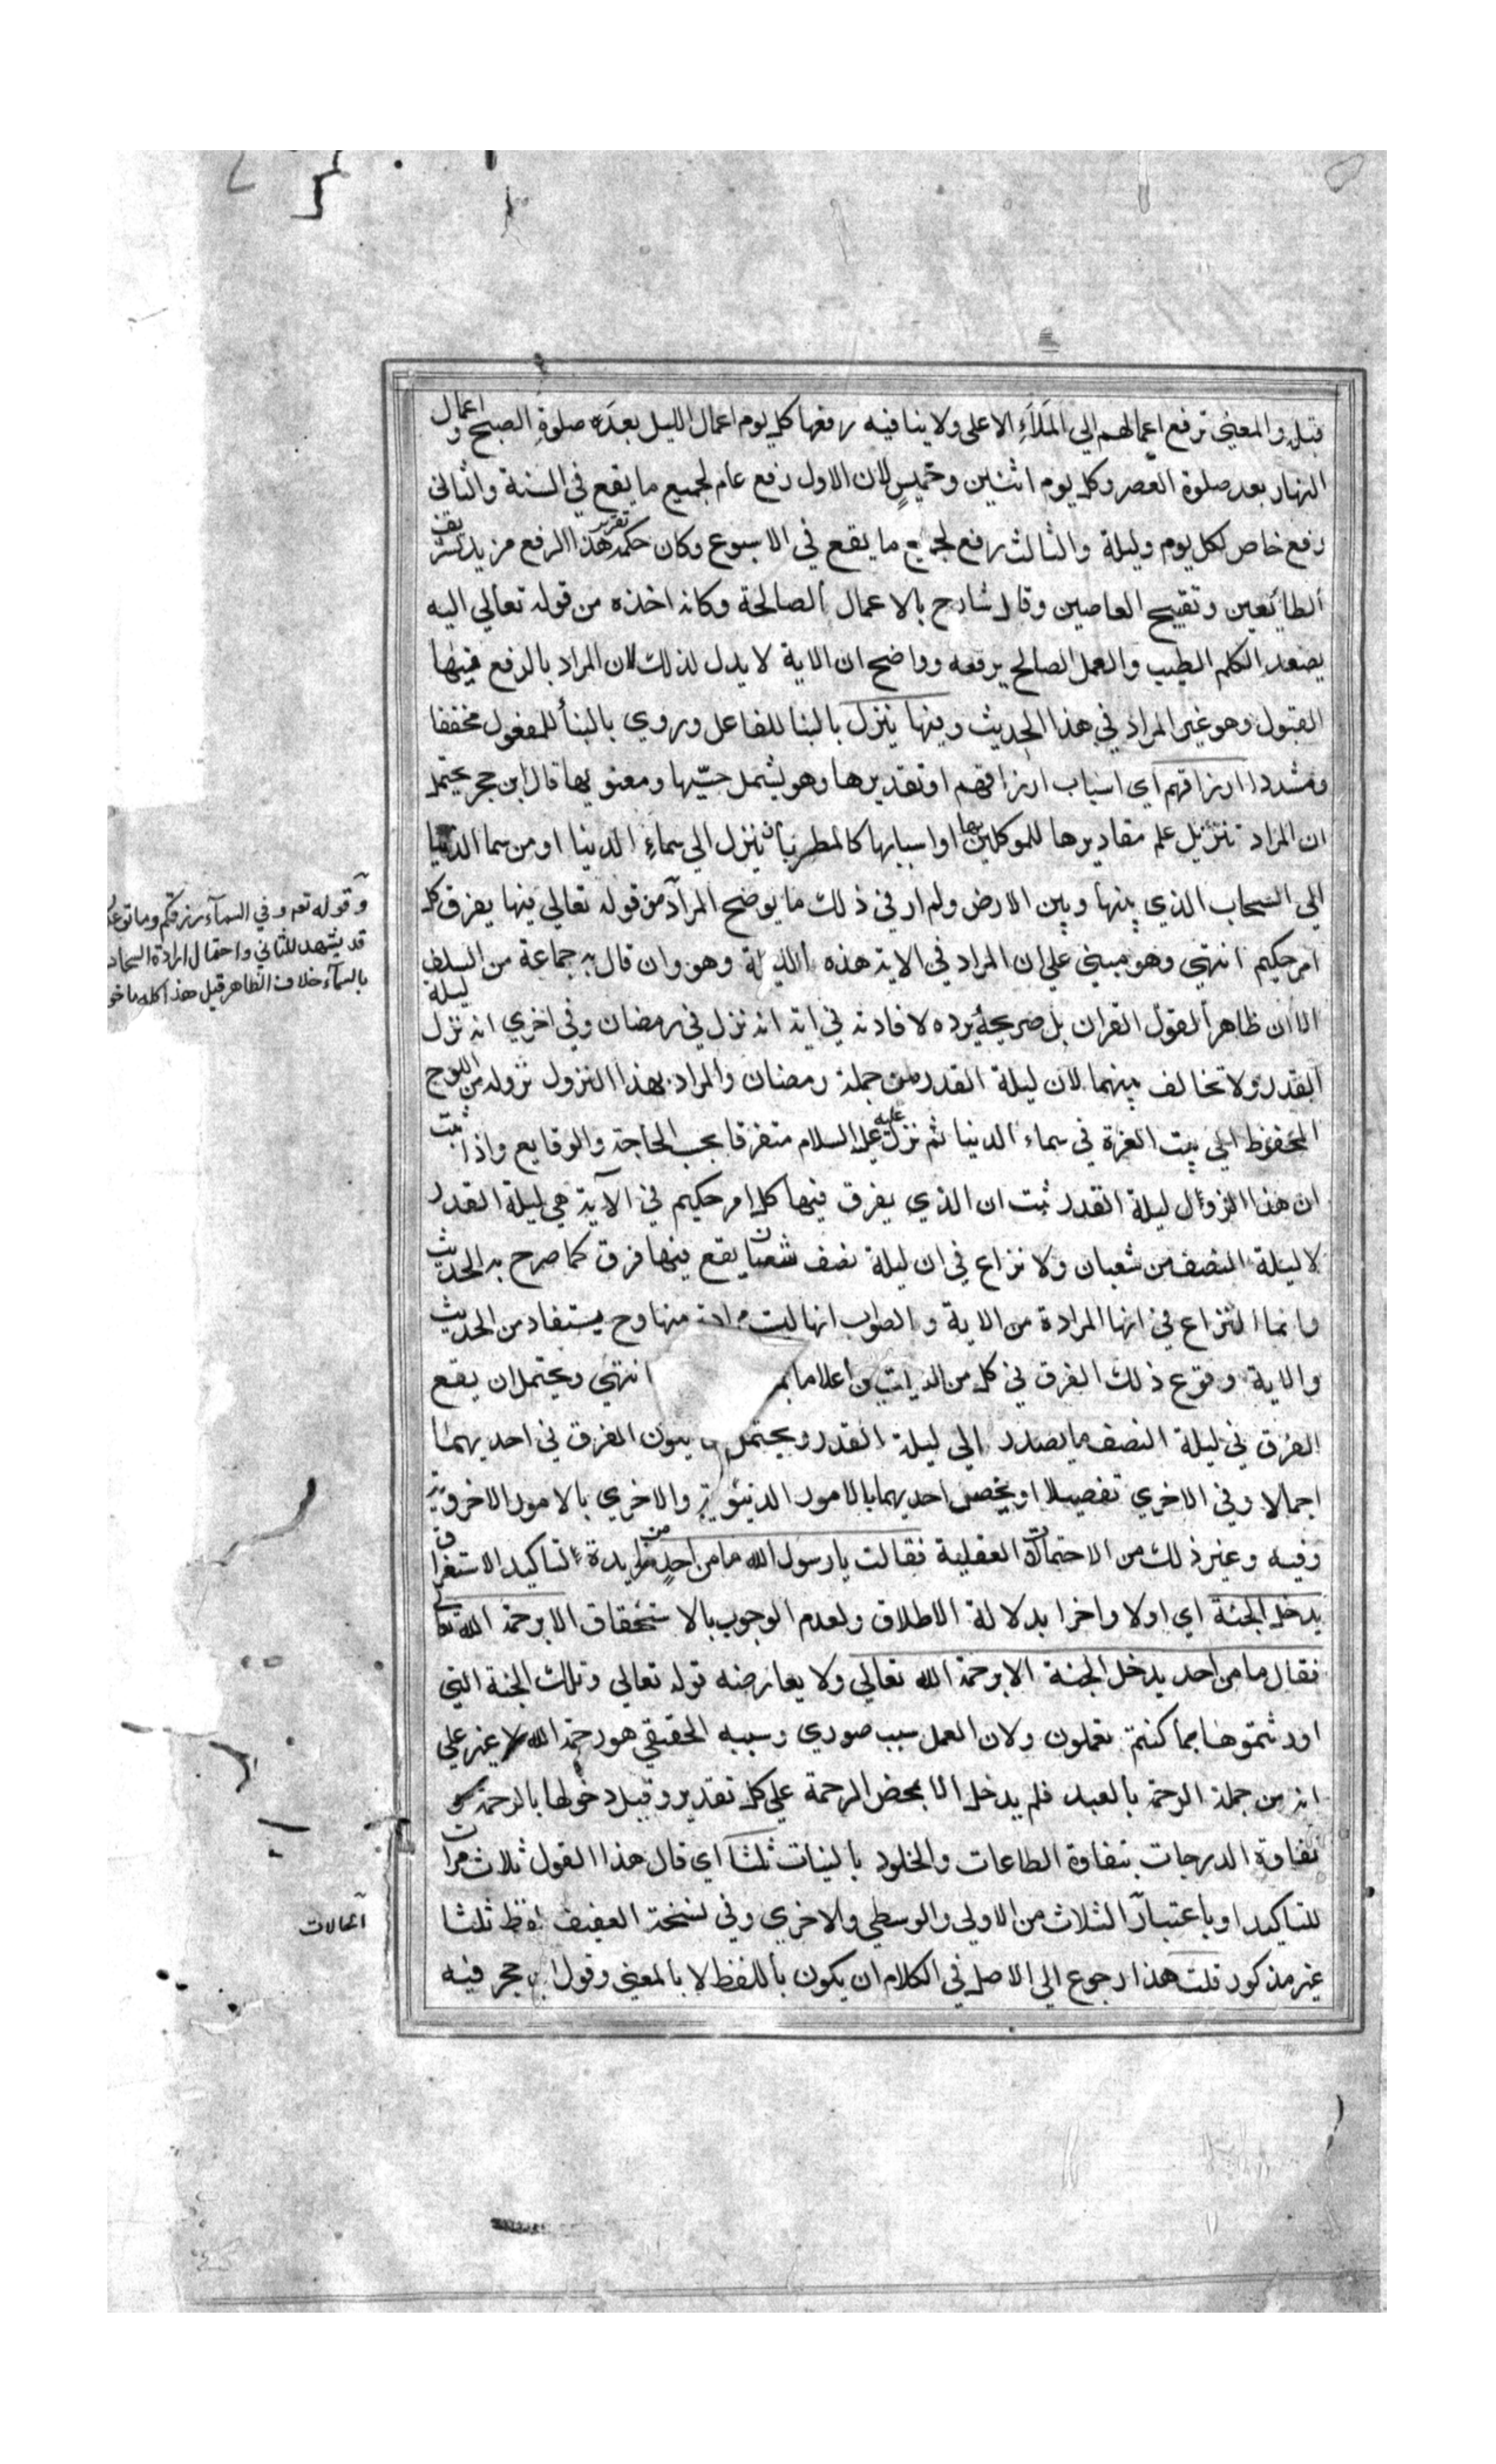 قبله والمعنى ترفع اعمالهم الى الملاء الاعلى ولا ينافيه رفعها كل يوم اعمال الليل بعده صلوة الصبح واعمال
النهار بعد صلوة العصر وكل يوم اثنين وخميس لان الاول رفع عام لجميع ما يقع في السنة والثاني
رفع خاص لكل يوم وليلة والثالث رفع لجميع ما يقع في الاسبوع وكان حكمة تقرير هذا الرفع مزيد تشريف
الطائعين وتقبيح العاصين وقال شارح بالاعمال الصالحة وكانه اخذه من قوله تعالي اليه
يصعد الكلم الطيب والعمل الصالح يرفعه وواضح ان الاية لا يدل لذلك لان المراد بالرفع فيها
القبول وهو غير المراد في هذا الحديث وفيها ينزل بالبنا للفاعل وروي بالبنأ للمفعول مخففا
ومشددا ارزاقهم اي اسباب ارزاقهم او تقديرها وهو يشمل حسيها ومعنويها قال ابن حجر يحتمل
ان المراد تنزيل علم مقاديرها للموكلين بها او اسبابها كالمطر بان ينزل الي سماء الدنيا او من سما الدنيا
الي السحاب الذي بينها وبين الارض ولم ار في ذلك ما يوضح المراد من قوله تعالي فيها يفرق كل
امر حكيم انتهي وهو مبني علي ان المراد في الاية هذه الليلة وهو وان قال به جماعة من السلف
الا ان ظاهر القول القران بل صريحه يرده لافادته في اية انه نزل في رمضان وفي اخري انه نزل ليلة
القدر ولا تخالف بينهما لان ليلة القدر من جملة رمضان والمراد بهذا النزول نزوله من اللوح
المحفوظ الي بيت العزة في سماء الدنيا ثم نزل عليه عليه السلام متفرقا بحسب الحاجة والوقايع واذا ثبت
ان هذا النزول ليلة القدر ثبت ان الذي يفرق فيها كل امر حكيم في الآية هي ليلة القدر
لا ليلة النصف من شعبان ولا نزاع في ان ليلة نصف شعبان يقع فيها فرق كما صرح به الحديث
وانما النزاع في انها المرادة من الاية والصواب انها ليست مرادة منها وح يستفاد من الحديث
والاية وقوع ذلك الفرق في كل من الليلتين اعلاما انتهي ويحتمل ان يقع
الفرق في ليلة النصف ما يصدر الي ليلة القدر ويحتمل ان يكون الفرق في احديهما
اجمالا وفي الاخري تفصيلا او يخص احديهما بالامور الدنيوية والاخري بالامور الاخروية
وفيه وغير ذلك من الاحتمالات العقلية فقالت يا رسول الله ما من احد من مزيدة لتاكيد الاستغراق
يدخل الجنة اي اولا واخرا بدلالة الاطلاق ولعدم الوجوب بالاستحقاق الا برحمة الله تعالي
فقال ما من احد يدخل الجنة الا برحمة الله تعالي ولا يعارضه قوله تعالي وتلك الجنة التي
اورثتموها بما كنتم تعملون ولان العمل سبب صوري وسببه الحقيقي هو رحمة الله لا غير علي
انه من جملة الرحمة بالعبد فلم يدخل الا بمحض الرحمة علي كل تقدير وقيل دخولها بالرحمة و
تفاوة الدرجات بتفاوة الطاعات والخلود بالنيات ثلثا اي قال هذا القول ثلاث مرات
للتاكيد او باعتبار الثلاث من الاولي والوسطي والاخري وفي نسخة العفيف لفظ ثلثا
غير مذكور قلت هذا رجوع الي الاصل في الكلام ان يكون باللفظ لا بالمعني وقول ابن حجر فيه
وقوله تعه وفي السمآء رزقكم وما توعدون
قد يشهد للثاني واحتمال ارادة السحاب
بالسمآء خلاف الظاهر قيل هذا كله ماخو
الحالات